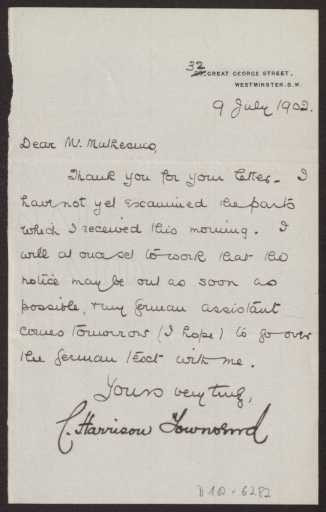 32
GREAT GEORGE STREET,
WESTMINSTER. S.W.
9 July 1902.
Dear Mr. Muthesius,
Thank you for your letter. I
have not yet examined the parts
which I received this morning. I
will at once set to work that the
notice may be out as soon as
possible, & my German assistant
comes tomorrow (I hope) to go over
the German text with me.
Yours very truly,
C. Harrison Townsend